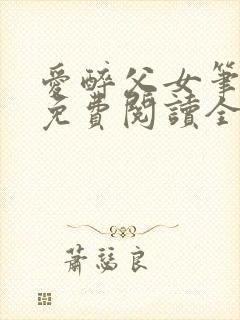 愛醉父女筆
免費閱讀全
蕭瑟良